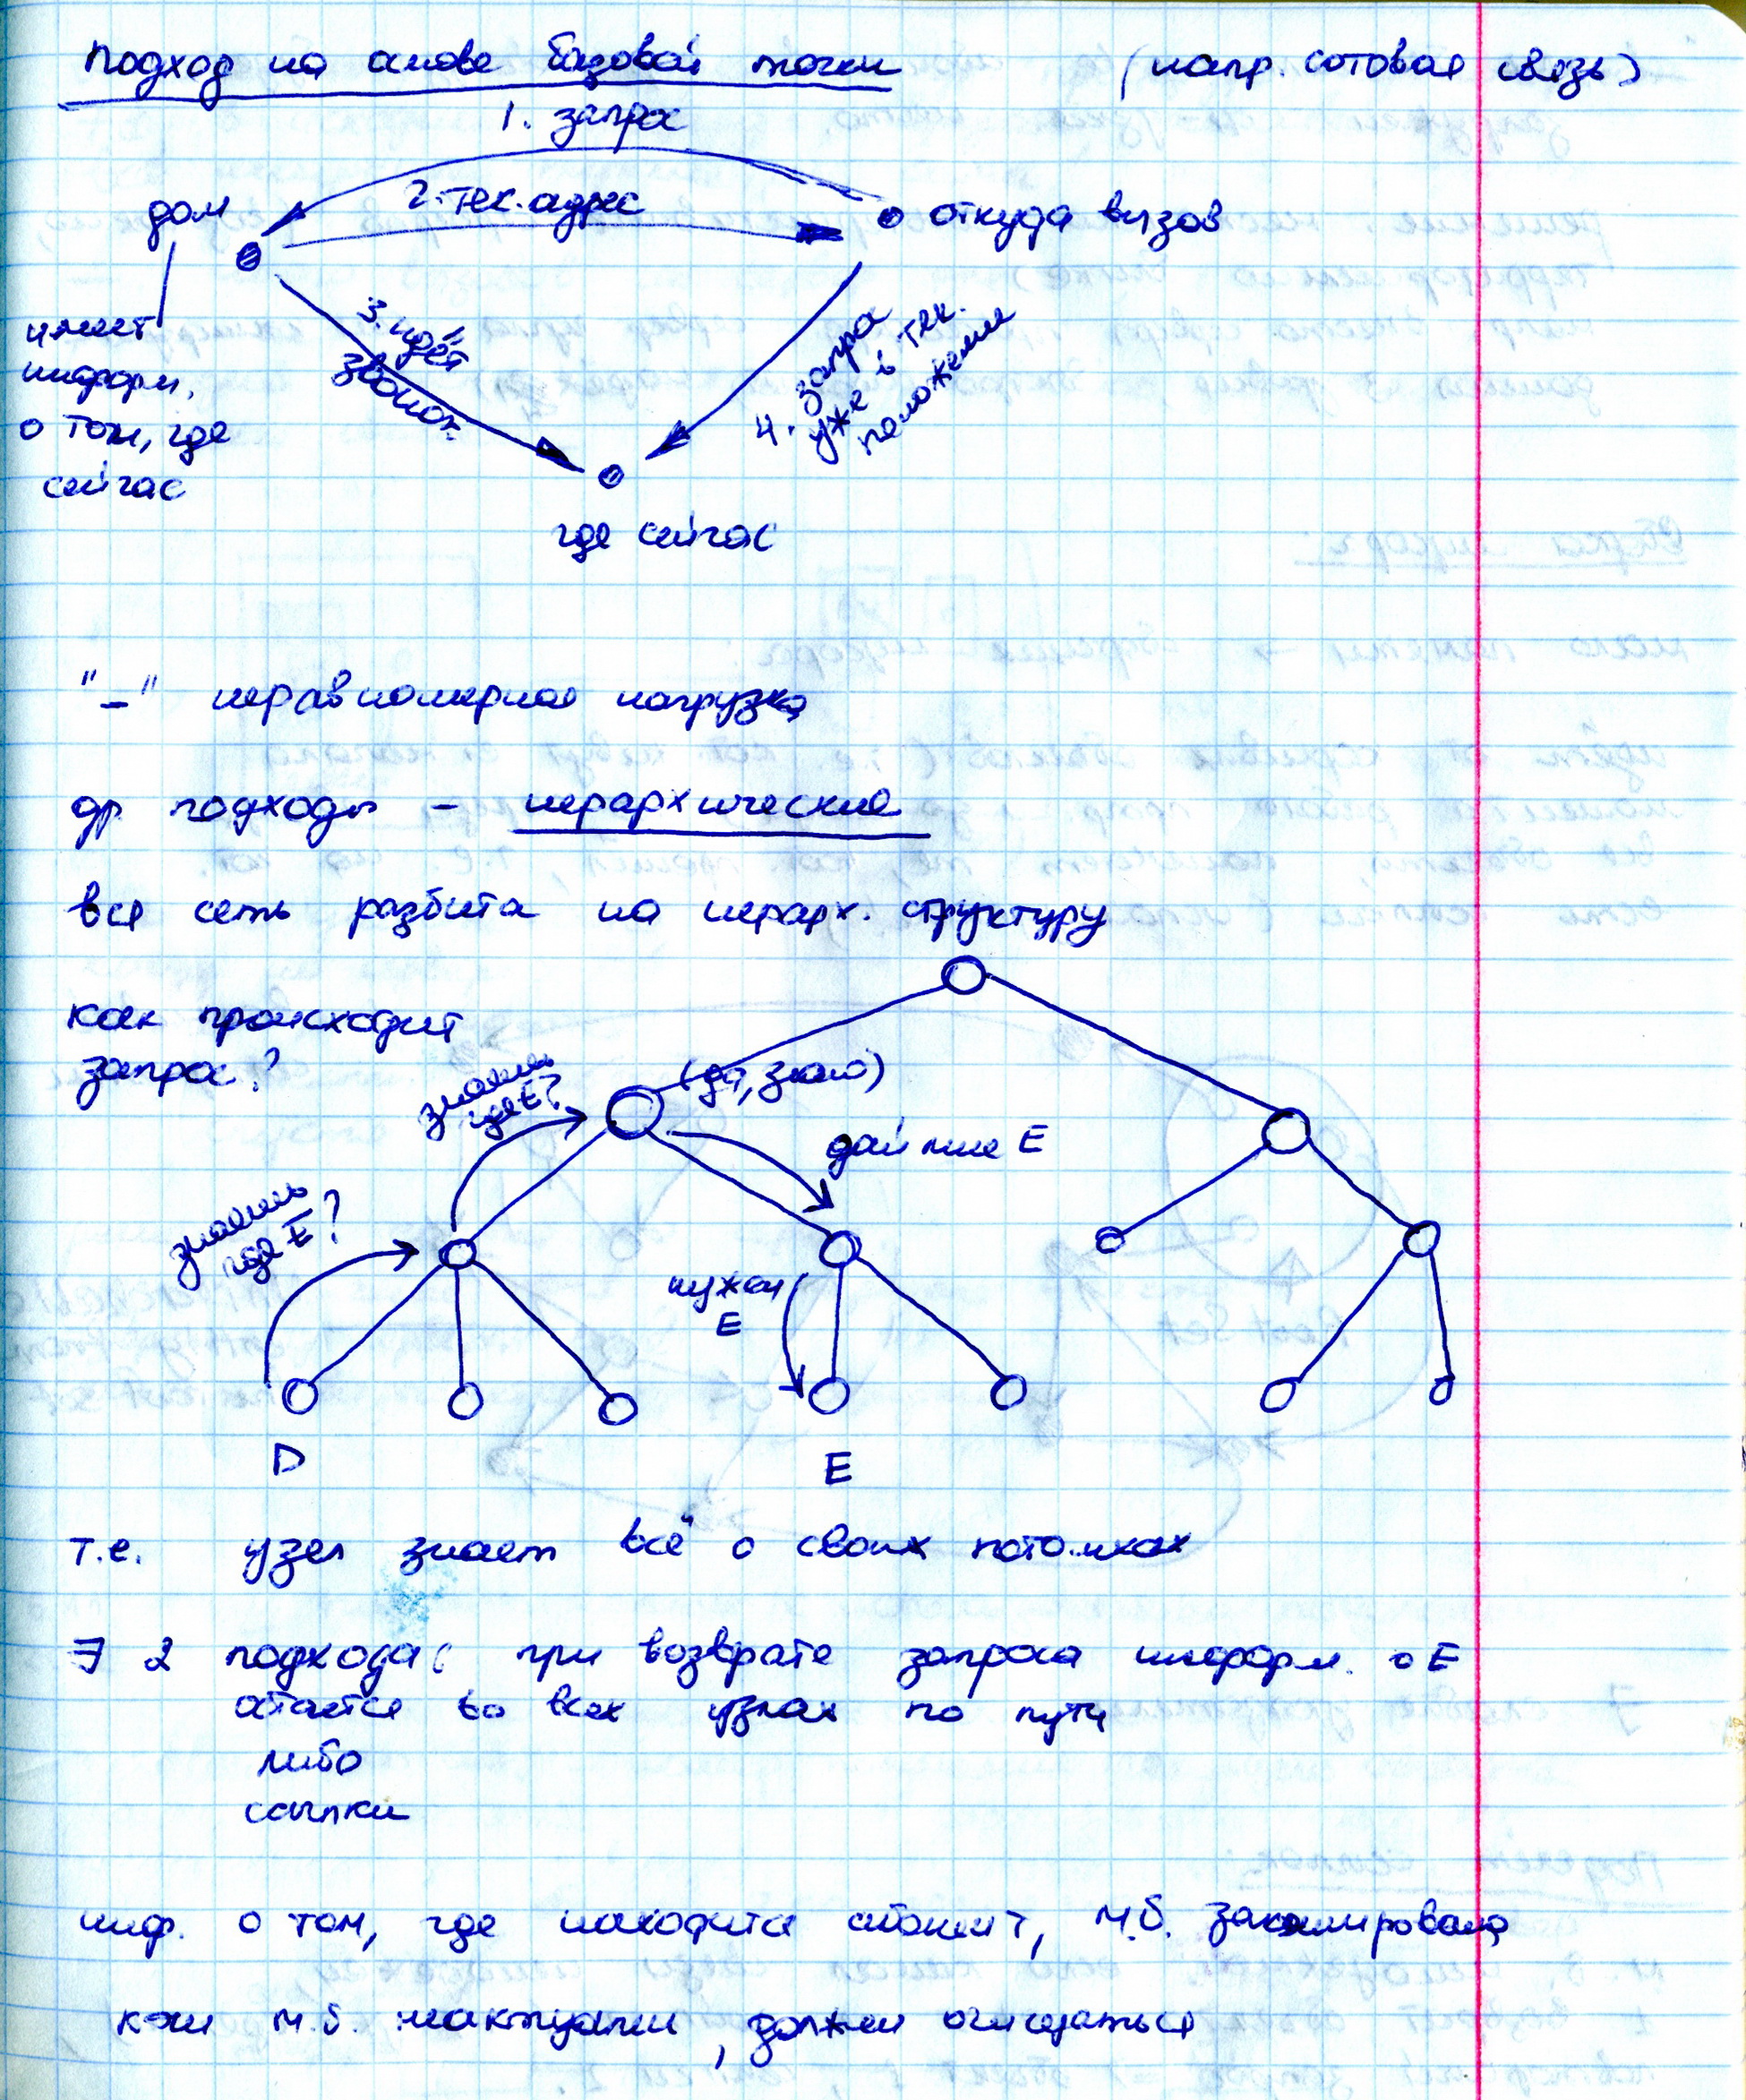 подход на основе базовой точки (напр. сотовая связь)
1. запрос
2. тек. адрес
дом
откуда вызов
имеет
информ.
о том, где
сейчас
3. идёт
звонок
4. запрос
уже в тек.
положении
где сейчас
"–" неравномерная нагрузка
др подходы – иерархические
вся сеть разбита на иерарх. структуру
как происходит
запрос?
знаешь
где E?
(да, знаю)
дай мне E
знаешь
где E?
нужен
E
D
E
т.е. узел знает всё о своих потомках
∃ 2 подхода: при возврате запроса информ. о E
остаётся во всех узлах по пути
либо
ссылки
инф. о том, где находится абонент, м.б. закэширована
кэш м.б. неактуален, должен очищаться